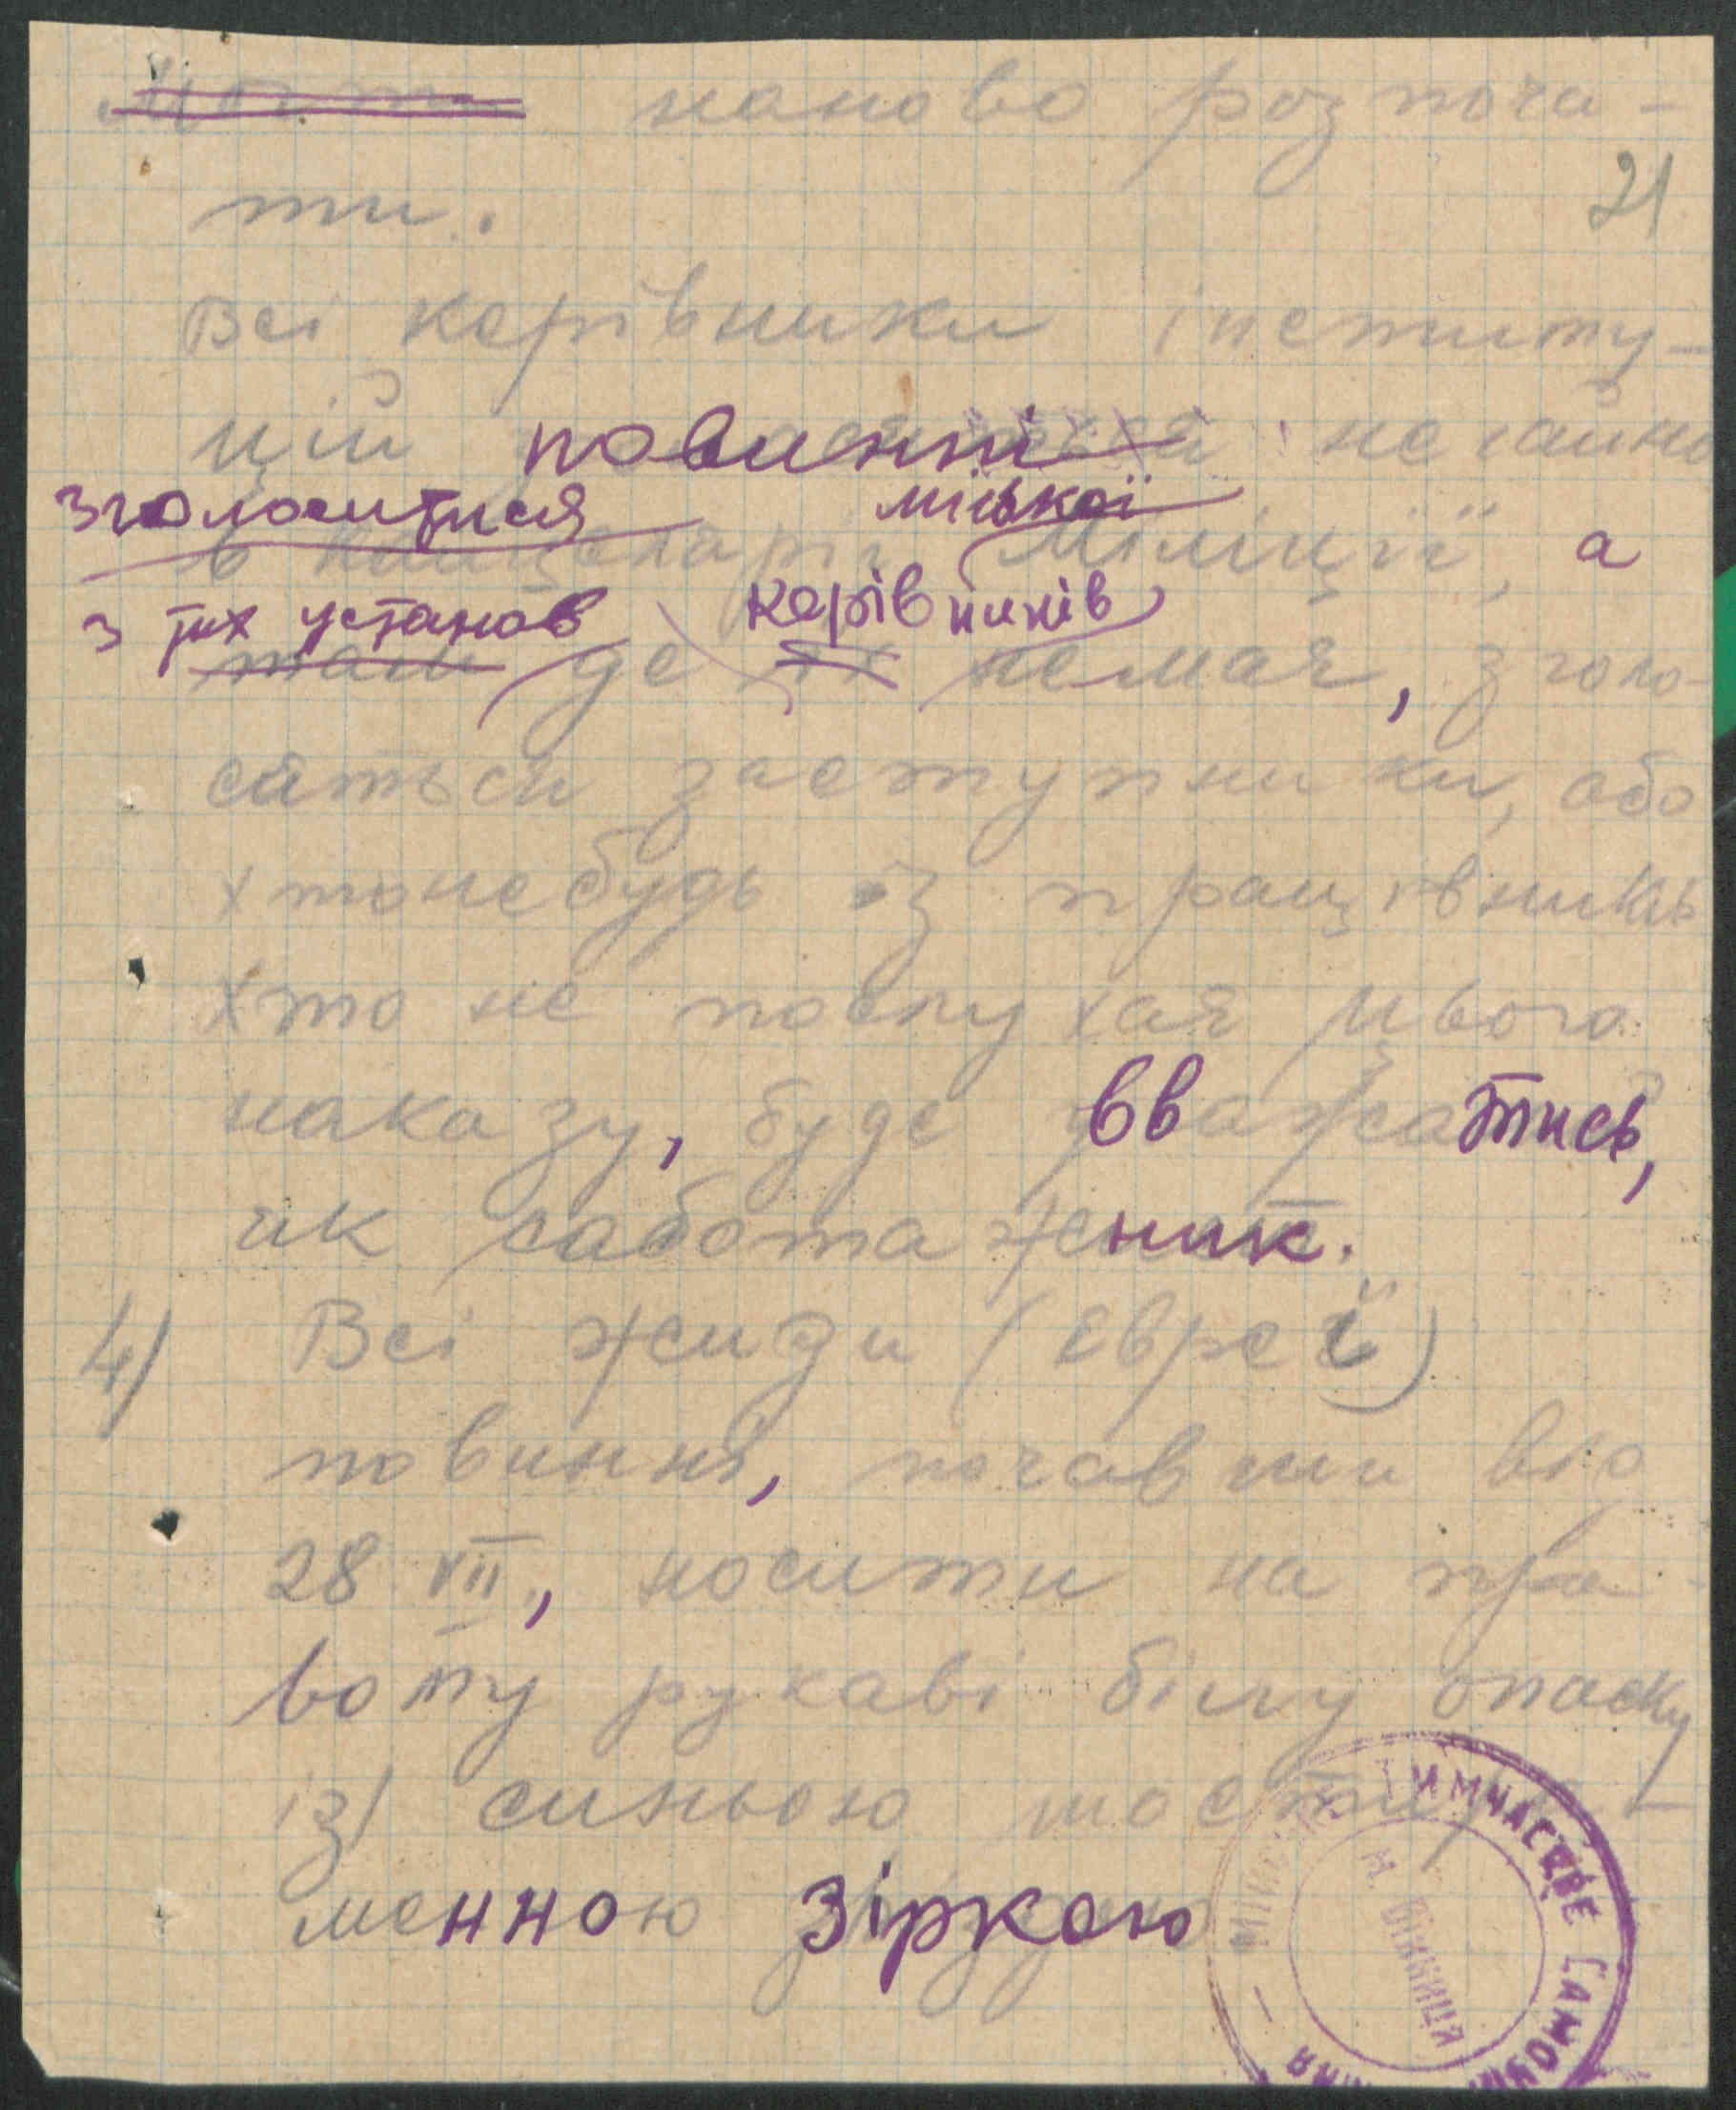 наново розпоча-
21
ти.
Всі керівники інститу-
цій повинні негайно
зголоситися міської
в канцелярії Міліції, а
з тих установ керівників
там де їх немає, зголо-
сяться заступники, або
хтонебудь із працівників
Хто не послухає цього
наказу, буде вважатись,
як саботажник.
4) Всі жиди (євреї)
повинні, почавши від
28 VII, носити на пра-
вому рукаві білу опаску
із синьою шостира-
менною зіркою
ТИМЧАСОВЕ САМОУП
М. ВІННИЦЯ